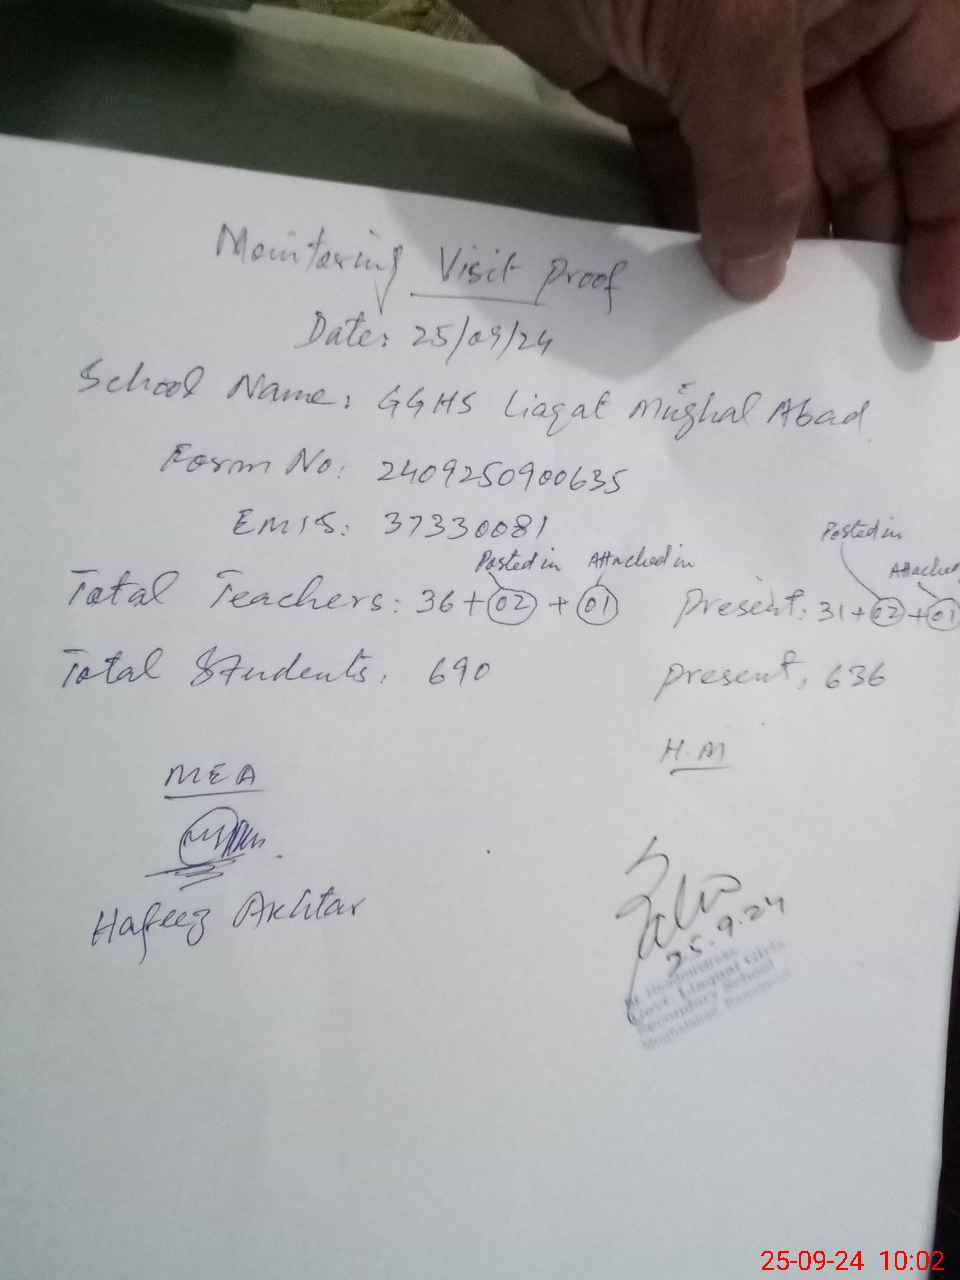 Monitoring Visit Proof
Date: 25/09/24
School Name: GGHS Liaqat Mughal Abad
Form No: 2409250900635
EMIS: 37330081
Posted in Attached in Posted in Attached
Total Teachers: 36 + 02 + 01 Present: 31 + 02 + 01
Total Students: 690 Present: 636
MEA H.M
Hafeez Akhtar
25.9.24
Govt. Liaquat Girls
Secondary School
25-09-24 10:02